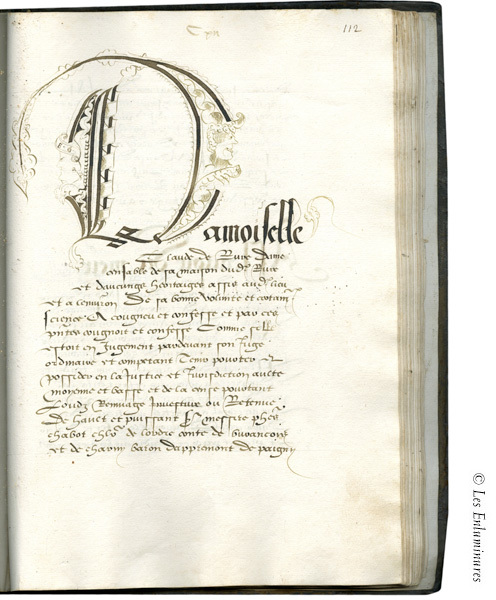 112
Damoiselle
Claude de Rure Dame
censable de sa maison dud Rure
et daucungs heritaiges assis aud lieu
et a lenviron De sa bonne volunte et certain
science A cogneu et confesse et par ces
pntes congnoit et confesse Comme selle
estoit en Jugement pardevant son Juge
ordinaire et competant Tenir pouoter Et
posseder en la Justice et Jurisdiction aulte
moyenne et basse et de la cense pourtant
Loudz Remuage Investure ou Retenue
De hault et puissant messire phes
chabot chlr de lordre conte de buzancois
et de charny baron dapremont de paigny
© Les Enluminures